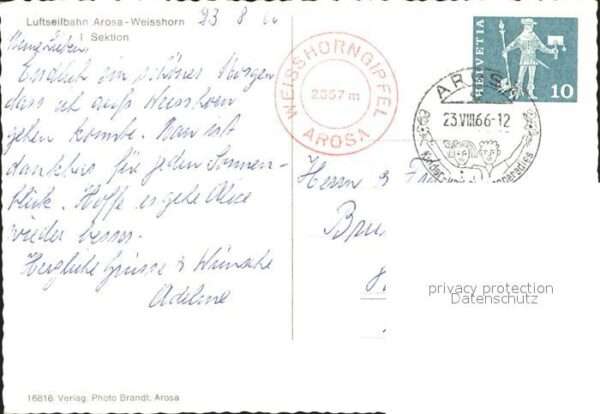 Luftseilbahn Arosa-Weisshorn
I. Sektion
23 8 66
Meine Lieben,
Endlich ein schöner Morgen
dass ich aufs Weisshorn
gehen konnte. Man ist
dankbar für jeden Sonnen-
blick. Hoffe es gehe Alice
wieder besser.
Herzliche Grüsse & Wünsche
Adeline
WEISSHORNGIPFEL
2357 m
AROSA
HELVETIA
10
AROSA
23.VIII.66-12
Herrn &
privacy protection
Datenschutz
16816 Verlag Photo Brandt, Arosa